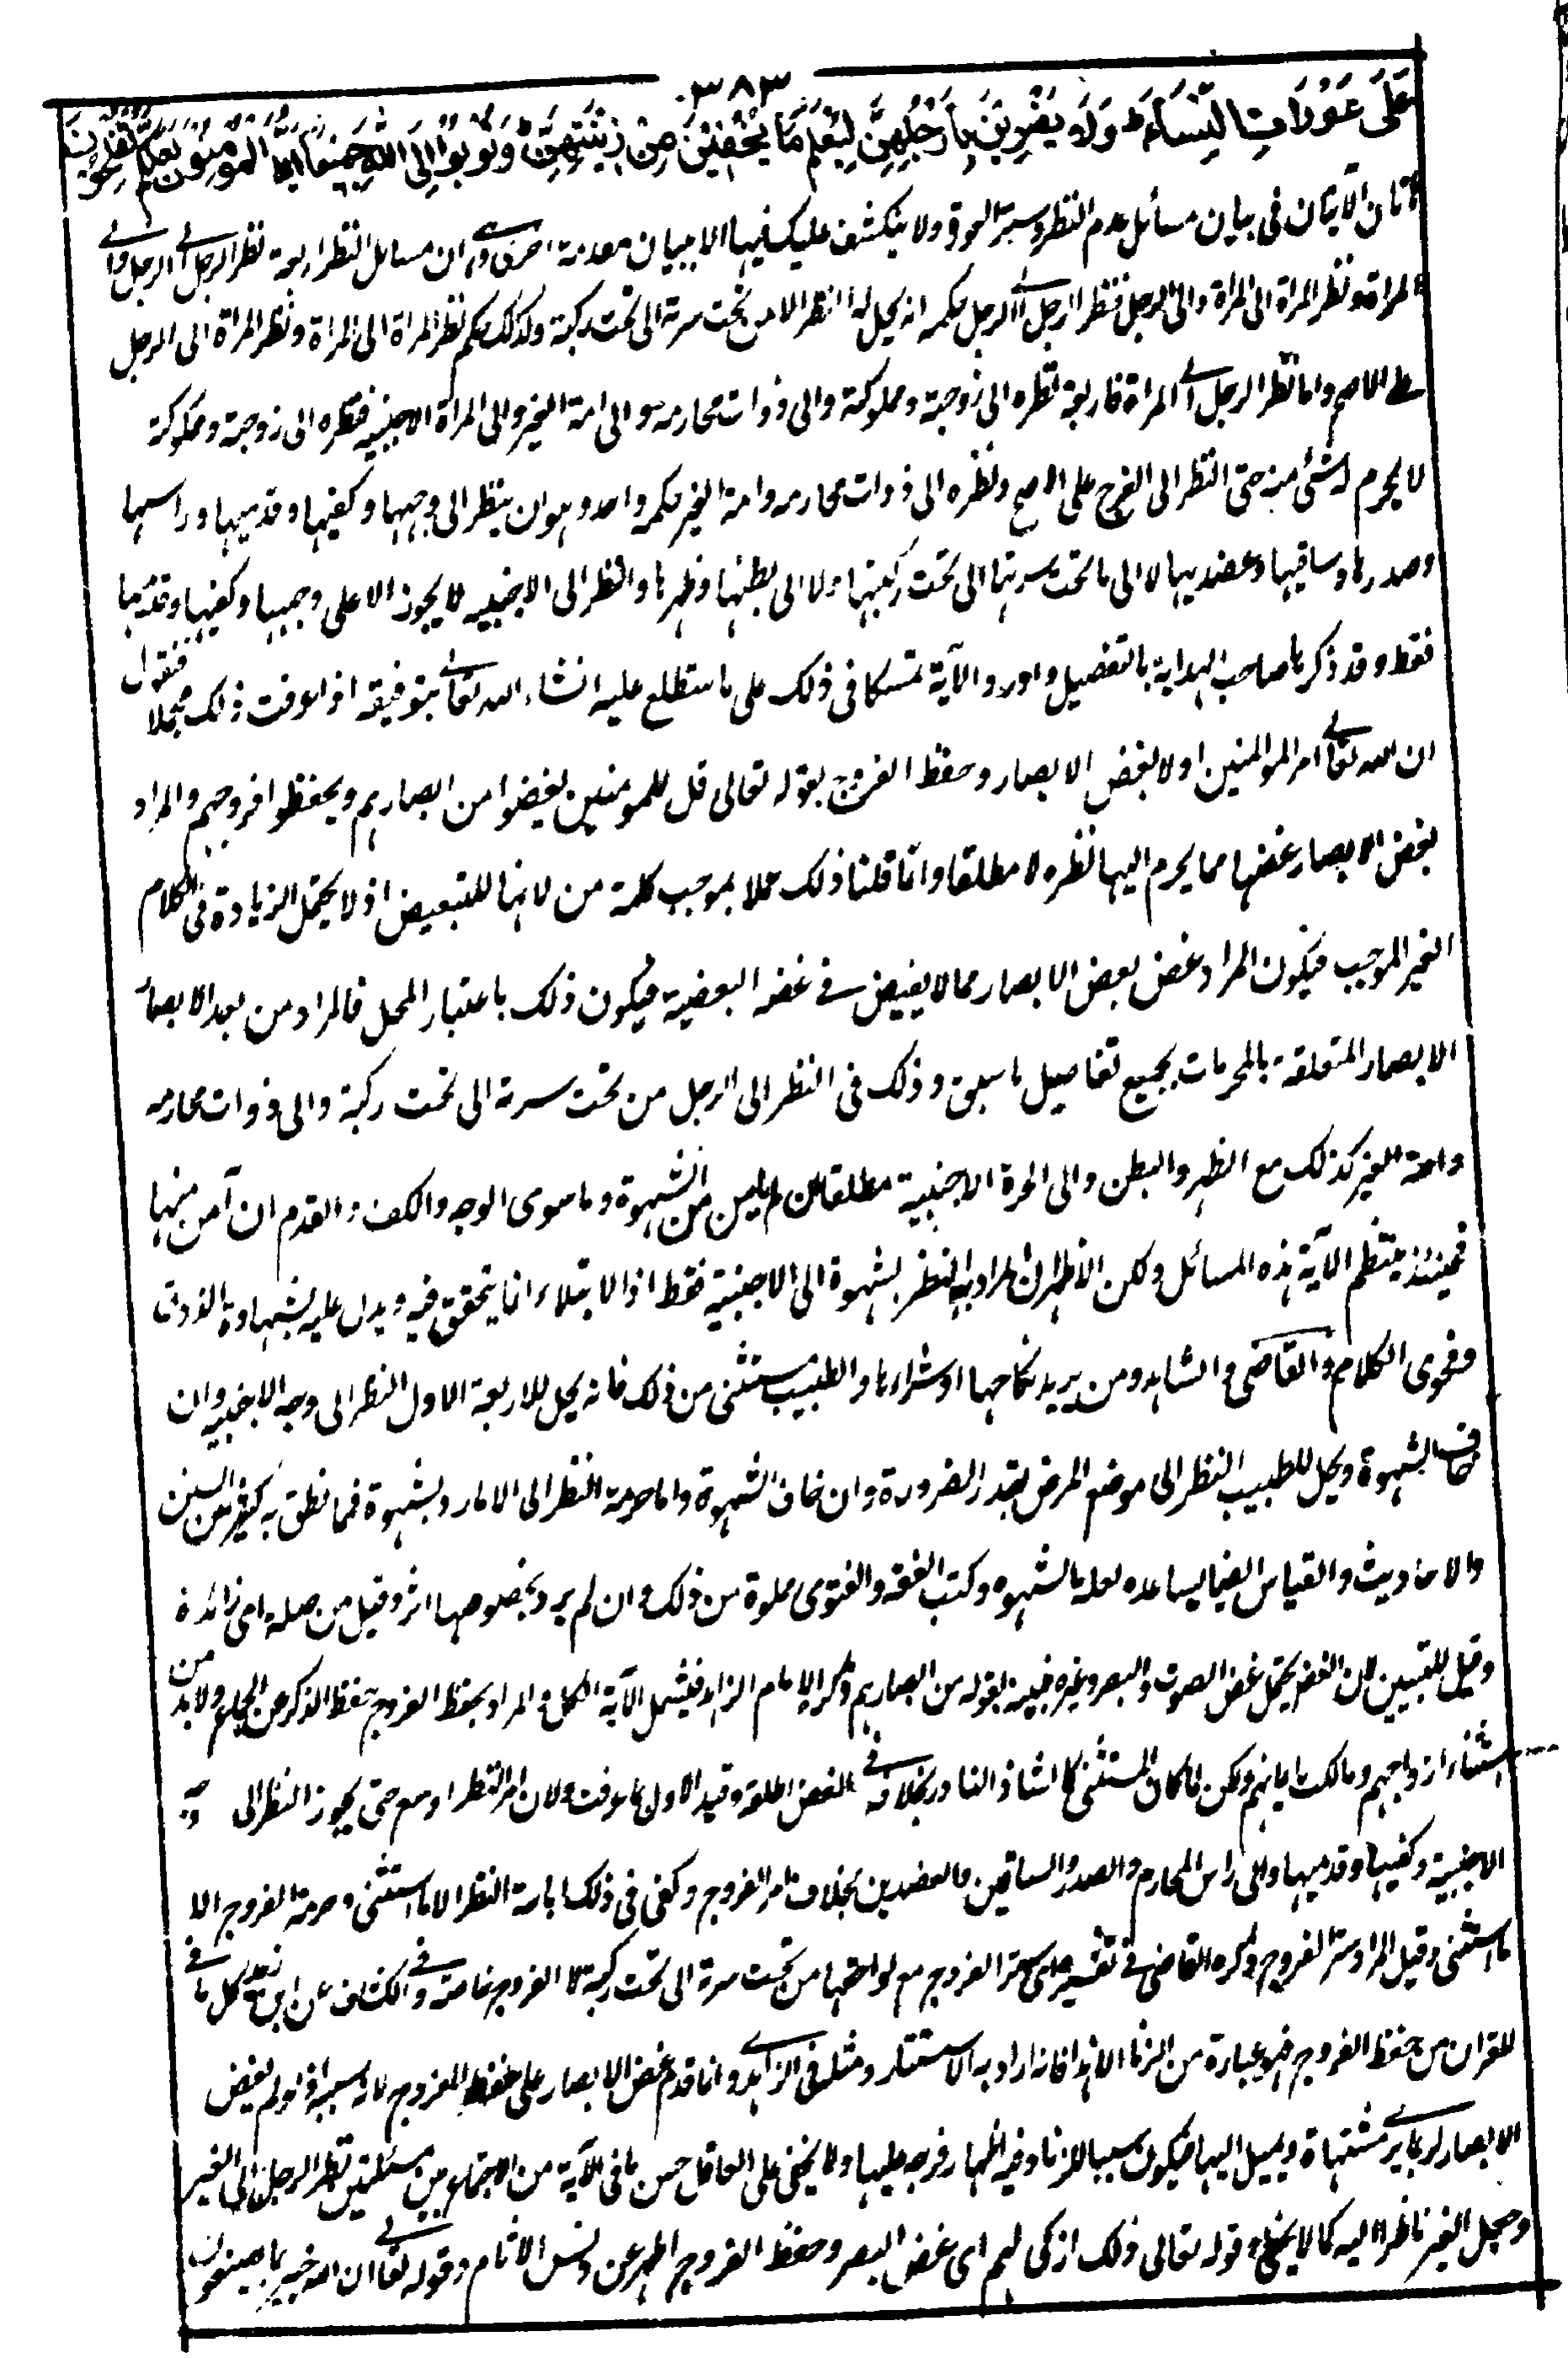 ٣٨٣
عَلَى عَوْرَاتِ النِّسَاءِ وَلَا يَضْرِبْنَ بِأَرْجُلِهِنَّ لِيُعْلَمَ مَا يُخْفِيْنَ مِنْ زِيْنَتِهِنَّ وَتُوْبُوْا اِلَى اللّٰهِ جَمِيْعًا اَيُّهَ الْمُؤْمِنُوْنَ لَعَلَّكُمْ تُفْلِحُوْنَ
هاتان الآيتان فى بيان مسائل عدم النظر وستر العورة ولا ينكشف عليك فيها الا ببيان مقدمة اخرى وهى ان مسائل النظر اربعة نظر الرجل الى الرجل والى
المراة ونظر المراة الى المراة والى الرجل فنظر الرجل الى الرجل حكمه انه يحل له النظر الا من تحت سرته الى تحت ركبته وكذلك حكم نظر المراة الى المراة ونظر المراة الى الرجل
على الاصح واما نظر الرجل الى المراة فاربعة نظره الى زوجته ومملوكته والى ذوات محارمه والى امة الغير والى المراة الاجنبية فنظره الى زوجته ومملوكته
لا يحرم شئ منه حتى النظر الى الفرج على الاصح ونظره الى ذوات محارمه وامة الغير حكمه واحد وهو ان ينظر الى وجهها وكفيها وقدميها وراسها
وصدرها وساقيها وعضديها لا الى ما تحت سرتها الى تحت ركبتها ولا الى بطنها وظهرها والنظر الى الاجنبية لا يجوز الا على وجهها وكفيها وقدميها
فقط وقد ذكرها صاحب الهداية بالتفصيل واورد الآية تمسكا فى ذلك على ما ستطلع عليه انشاء الله تعالى بتوفيقه اذا عرفت ذلك مجملا فنقول
ان الله تعالى امر المؤمنين اولا بغض الابصار وحفظ الفروج بقوله تعالى قل للمومنين يغضوا من ابصارهم ويحفظوا فروجهم والمراد
بغض الابصار غضها مما يحرم اليها نظره لا مطلقا وانما قلنا ذلك عملا بموجب كلمة من لانها للتبعيض اذ لا يحتمل الزيادة فى الكلام
الغير الموجب فيكون المراد غض بعض الابصار مما لا يفيض فى غضه البعضية فيكون ذلك باعتبار المحل فالمراد من بعد الابصار
الابصار المتعلقة بالمحرمات بجميع تفاصيل ما سبق وذلك فى النظر الى الرجل من تحت سرته الى تحت ركبته والى ذوات محارمه
وامة الغير كذلك مع الظهر والبطن والى الحرة الاجنبية مطلقا ان لم يامن من الشهوة وما سوى الوجه والكف والقدم ان آمن منها
فحينئذ ينتظم الآية هذه المسائل ولكن الاظهر ان المراد به النظر بشهوة الى الاجنبية فقط اذ الابتلاء انما يتحقق فيه ويدل عليه شهادة الذوق
وفحوى الكلام والقاضى والشاهد ومن يريد نكاحها او شراءها والطبيب مستثنى من ذلك فانه يحل للاربعة الاول النظر الى وجه الاجنبية وان
خاف الشهوة ويحل للطبيب النظر الى موضع المرض بقدر الضرورة وان خاف الشهوة واما حرمة النظر الى الامارد بشهوة فما نطق به كثير من السنن
والاحاديث والقياس ايضا يساعده لعلة الشهوه وكتب الفقه والفتوى مملوة من ذلك وان لم يرد بخصوصها اثر وقيل من صلة اى زائدة
وقيل للتبيين لان الغض يحتمل غض الصوت والبصر وغيره فبينه بقوله من ابصارهم ذكره الامام الزاهد فيشمل الآية الكل والمراد بحفظ الفروج حفظ الذكر عن الجماع ولا بد من
استثناء ازواجهم وما ملكت ايمانهم ولكن لما كان المستثنى كالشاذ النادر بخلافه فى الغض اطلقه وقيد الاول بما عرفت ولان امر النظر اوسع حتى يجوز النظر الى وجه
الاجنبية وكفيها وقدميها والى راس المحارم والصدر والساقين والعضدين بخلاف امر الفروج وكفى فى ذلك اباحة النظر الا ما استثنى وحرمة الفروج الا
ما استثنى وقيل المراد ستر الفروج ذكره القاضى فى تفسيره على ستر الفروج مع لواحقها من تحت سرته الى تحت ركبته لا الفروج خاصة وفى الكشاف عن ابن زيد كل ما فى
القران من حفظ الفروج فهو عبارة من الزنا الا هذا فانه اراد به الاستتار ومثله فى الزاهدى وانما قدم غض الابصار على حفظ الفروج لانه سببه اذ لو لم يغض
الابصار لربما يرى مشتهاة ويميل اليها فيكون سببا للزنا وفيه اظهار فرجه عليها ولا يخفى على العاقل حسن ما فى الآية من الاجتماع بين مسئلتين نظر الرجل الى الغير
وجعل الغير ناظرا اليه كما لا يخفى وقوله تعالى ذلك ازكى لهم اى غض البصر وحفظ الفروج اطهر عن دنس الاثام وقوله تعالى ان الله خبير بما يصنعون